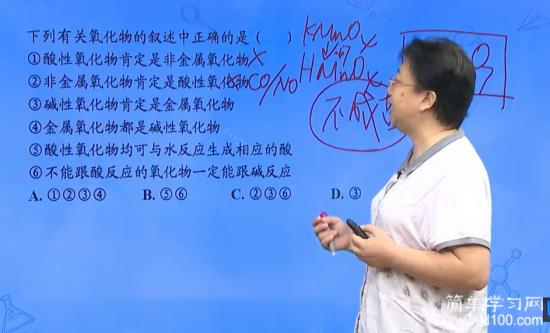 下列有关氧化物的叙述中正确的是（　）
①酸性氧化物肯定是非金属氧化物
②非金属氧化物肯定是酸性氧化物
CO/NO
③碱性氧化物肯定是金属氧化物
④金属氧化物都是碱性氧化物
⑤酸性氧化物均可与水反应生成相应的酸
⑥不能跟酸反应的氧化物一定能跟碱反应
A. ①②③④ B. ⑤⑥ C. ②③⑥ D. ③
简单学习网